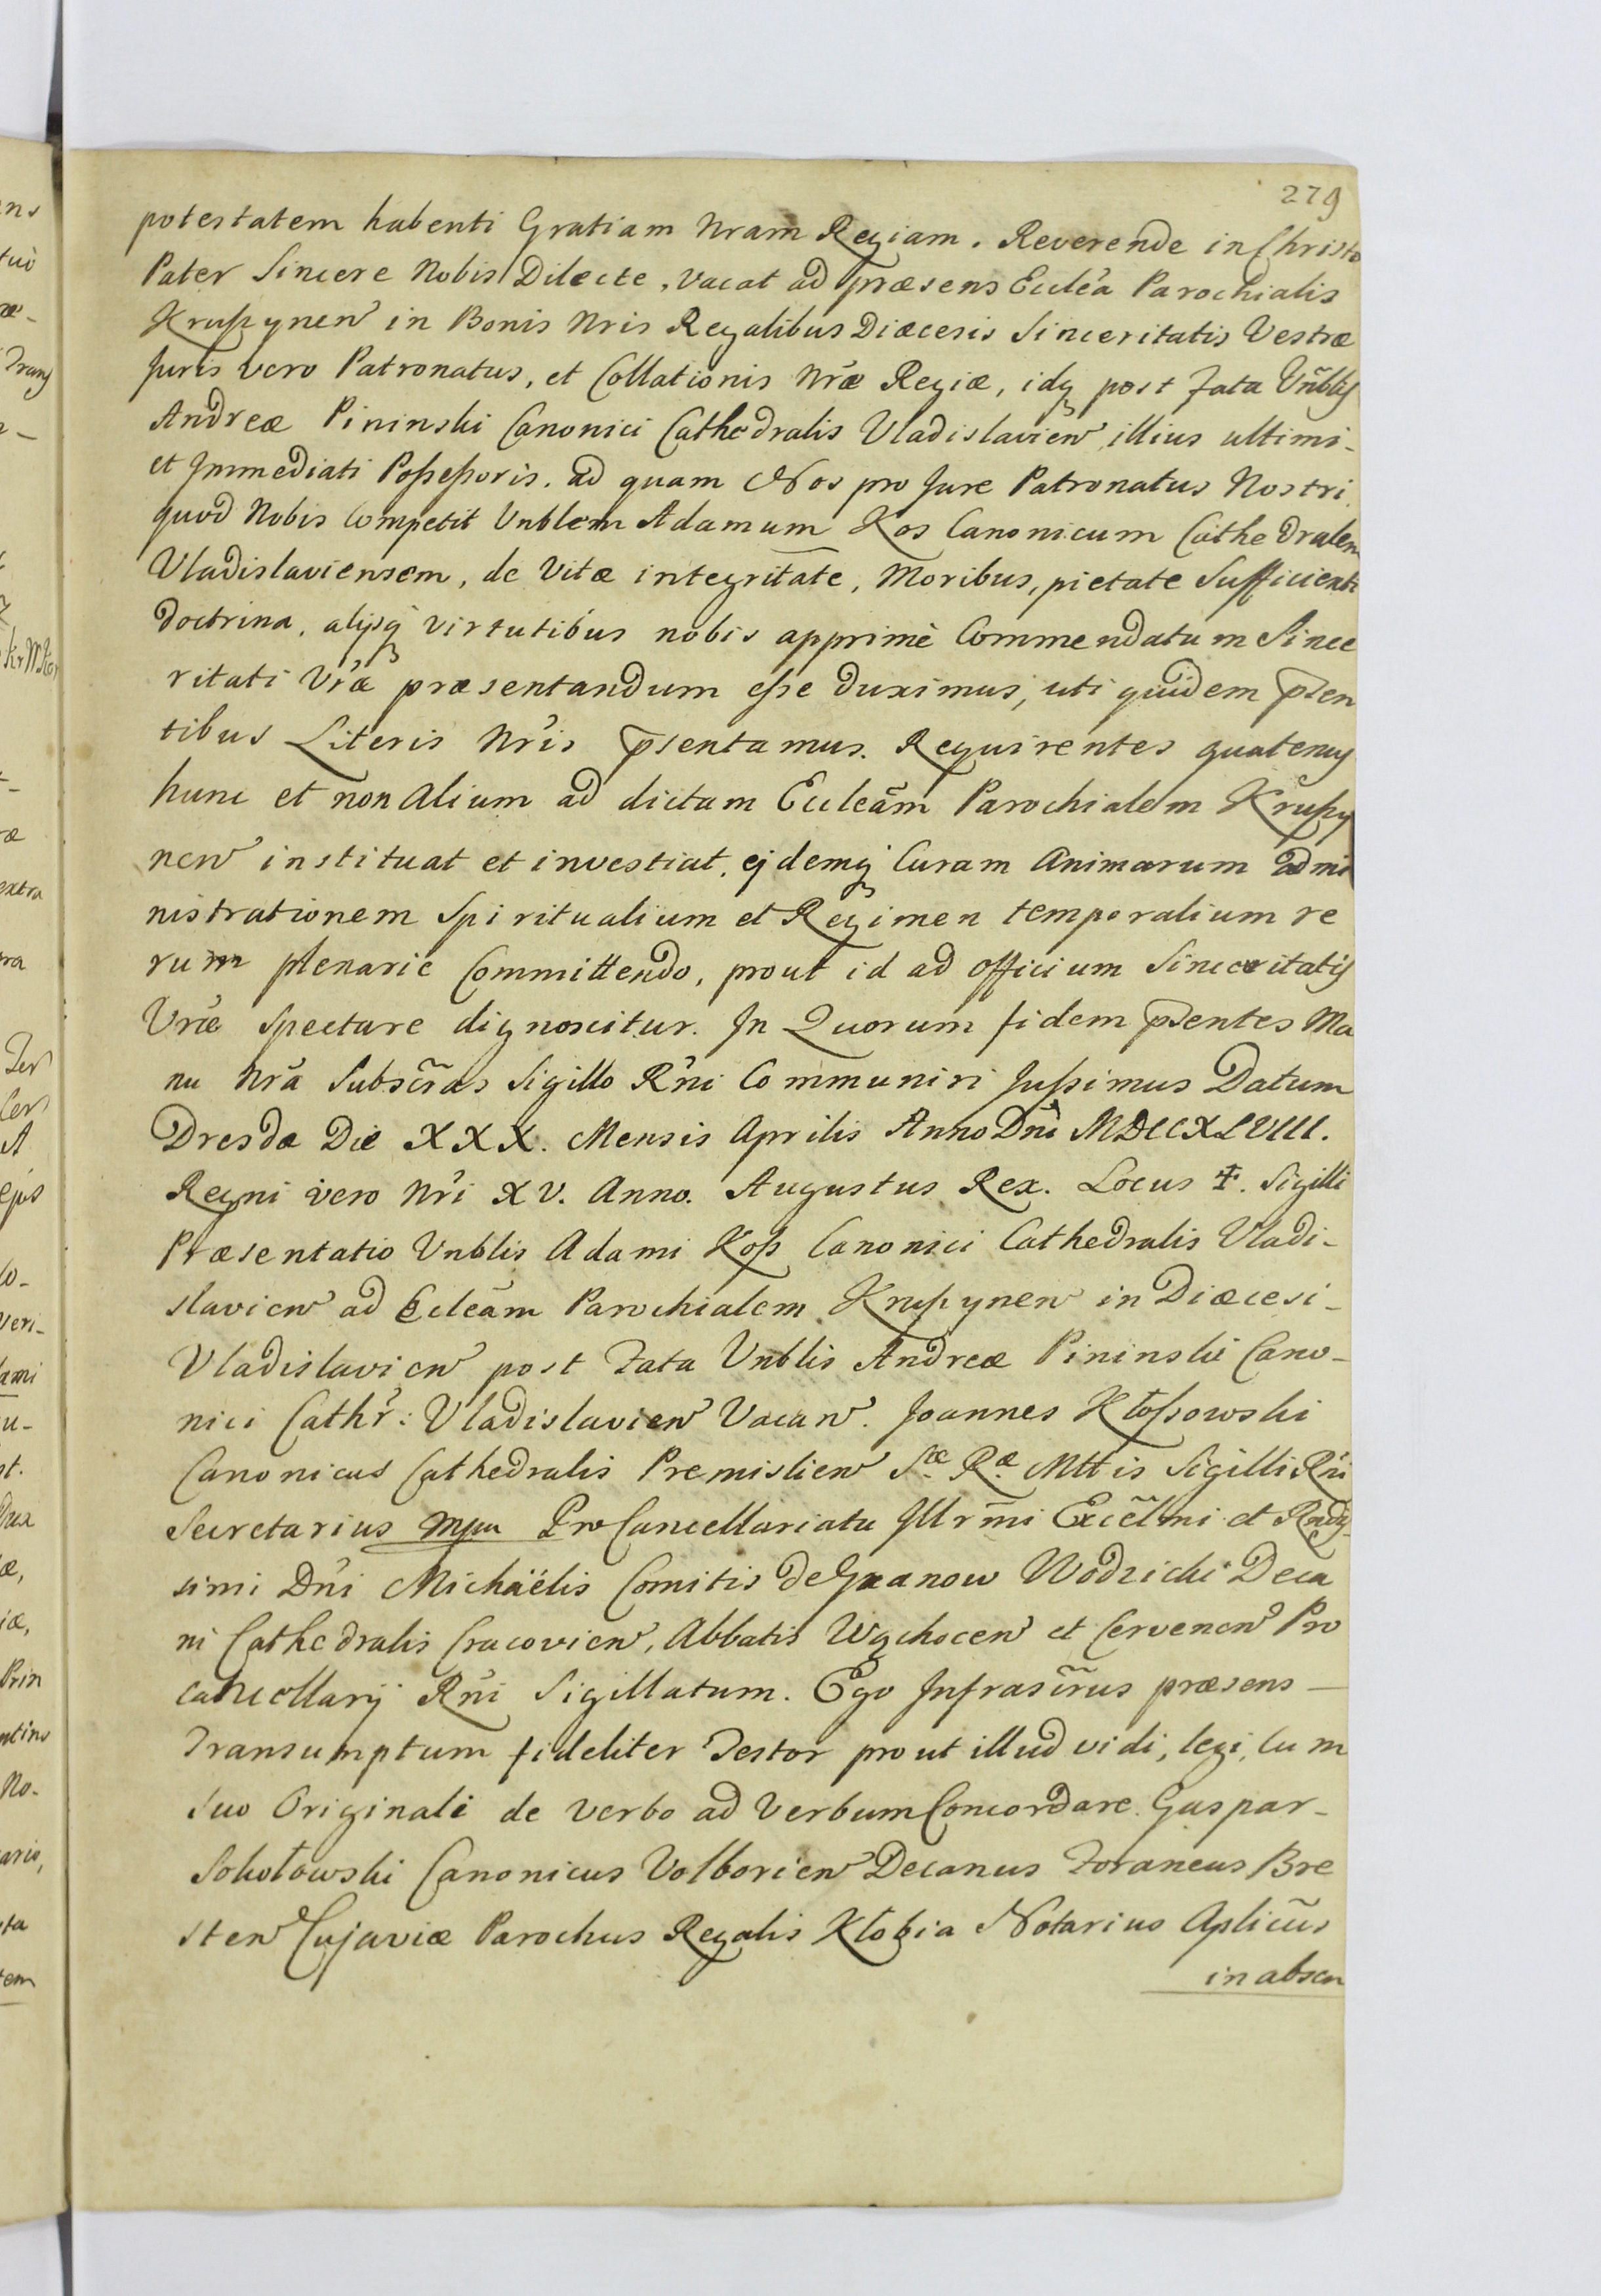 279
potestatem habenti Gratiam Nram Regiam. Reverende in Christo
Pater Sincere Nobis Dilecte, vacat ad præsens Eccle᷈a Parochialis
Krußynen in Bonis Nris Regalibus Diæcesis Sinceritatis Vestræ
Juris vero Patronatus, et Collationis Nr̃æ Regiæ, idq post Fata Vñblis
Andreæ Pininski Canonici Cathedralis Vladislavien illius ultimi-
et Immediati Poßeßoris. ad quam Nos pro Jure Patronatus Nostri
quod Nobis Competit Vnblem Adamum Kos Canonicum Cathedralem
Vladislaviensem, de Vitæ integritate, Moribus, pietate Sufficienti
doctrina, alijsq virtutibus nobis apprimè Commendatum Since
ritati Vr̃æ præsentandum eße duximus, uti quidem p̄sen
tibus Literis Nr̃is p̄sentamus. Requirentes quatenus
hunc et non Alium ad dictam Eccleãm Parochialem Krußy
nen instituat et investiat, ejdemq Curam Animarum admi
nistrationem Spiritualium et Regimen temporalium re
rum plenarie Committendo, prout id ad officium Sinceritatis
Vræ Spectare dignoscitur. In Quorum fidem p̄sentes Ma
nu Nr̃a Subscr̃as Sigillo Rñi Communiri Jußimus Datum
Dresdæ Die XXX. Mensis Aprilis Anno Dñi MDCCXLVIII.
Regni vero Nr̃i XV. Anno. Augustus Rex. Locus ‡. Sigilli
Præsentatio Vnblis Adami Koß Canonici Cathedralis Vladi-
slavien ad Ecleãm Parochialem Krußynen in Diæcesi-
Vladislavien post Fata Vnblis Andreæ Pininski Cano-
nici Cathr̃: Vladislavien Vacan. Joannes Kłoßowski
Canonicus Cathedralis Premislien Sæ Ræ Mttis Sigilli Rñi
Secretarius mpu Pro Cancellariatu Illr̃mi Excel̃mi et Rndis
simi Dñi Michaëlis Comitis de Granow Wodzicki Deca
ni Cathedralis Cracovien, Abbatis Wąchocen et Cervenen Pro
cancellarij Rñi Sigillatum. Ego Infrascr̃us præsens —
Transumptum fideliter Testor prout illud vidi, legi, cum
suo Originali de verbo ad Verbum Concordare. Gaspar-
Sokołowski Canonicus Volborien Decanus Foraneus Bre
sten Cujaviæ Parochus Regalis Kłobia Notarius Aplicũs
in absen